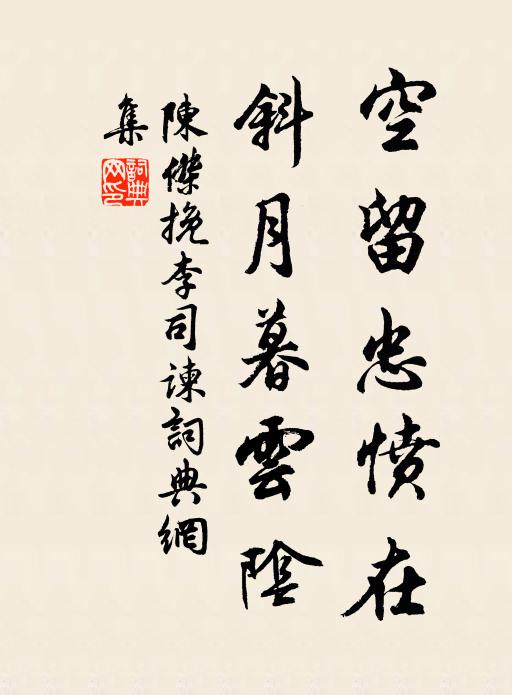 空留忠憤在
斜月暮雲陰
陳傑挽李司諫詞典網
集
詞典網印